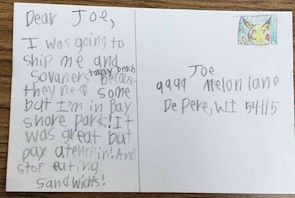 Dear Joe,
I was going to
ship me and
sovaners today because beach
they need some
but I'm in Bay
shore park! It
was great but
pay atenchin! And
stop eating
sandwichs!
Joe
9999 Melon lane
De Pere, WI 54115